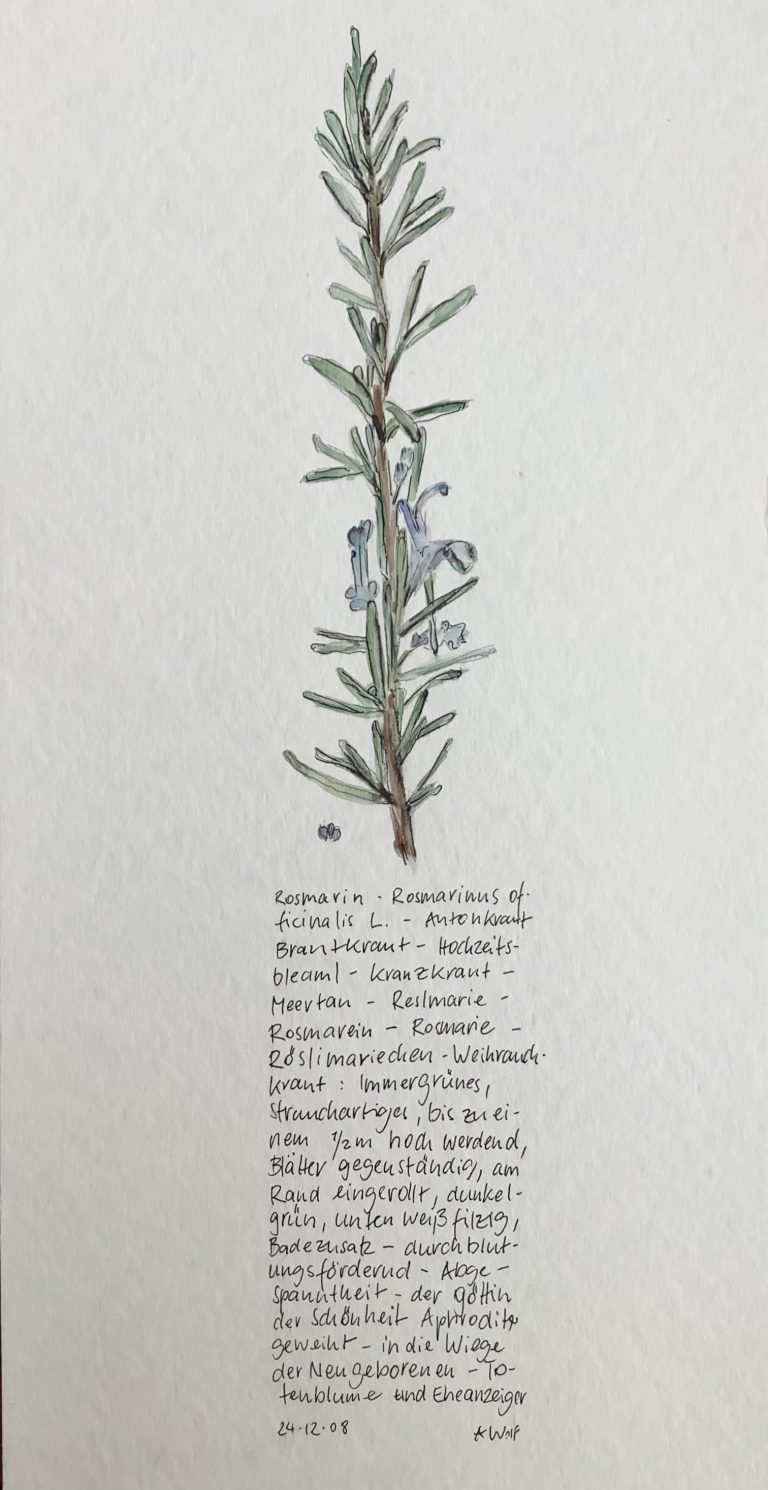 Rosmarin - Rosmarinus of-
ficinalis L. - Antonkraut
Brautkraut - Hochzeits-
bleaml - Kranzkraut -
Meertau - Reslmarie -
Rosmarein - Rosmarie -
Röslimariechen - Weihrauch-
kraut : Immergrünes,
strauchartiges, bis zu ei-
nem 1/2 m hoch werdend,
Blätter gegenständig, am
Rand eingerollt, dunkel-
grün, unten weißfilzig,
Badezusatz - durchblut-
ungsfördernd - Abge-
spanntheit - der göttin
der Schönheit Aphrodite
geweiht - in die Wiege
der Neugeborenen - To-
tenblume und Eheanzeiger
24.12.08 Wolf